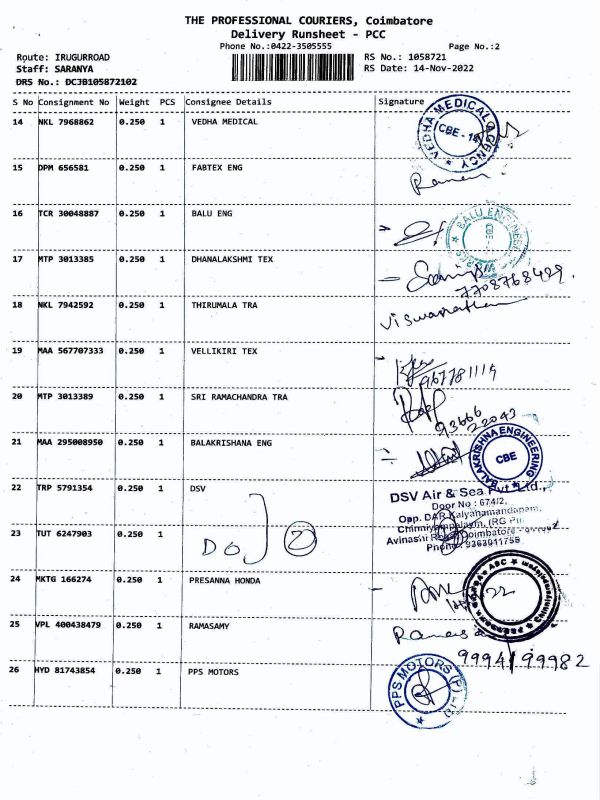 THE PROFESSIONAL COURIERS, Coimbatore
Delivery Runsheet - PCC
Phone No.:0422-3505555 Page No.:2
Route: IRUGURROAD RS No.: 1058721
Staff: SARANYA RS Date: 14-Nov-2022
DRS No.: DCJB105872102
S No Consignment No Weight PCS Consignee Details Signature
14 NKL 7968862 0.250 1 VEDHA MEDICAL
VEDHA MEDICAL AGENCY
CBE - 18
15 DPM 656581 0.250 1 FABTEX ENG
16 TCR 30048887 0.250 1 BALU ENG
BALU ENGINEE
CBE -
17 MTP 3013385 0.250 1 DHANALAKSHMI TEX
7708768429.
18 NKL 7942592 0.250 1 THIRUMALA TRA
Viswanathan
19 MAA 567707333 0.250 1 VELLIKIRI TEX
20 MTP 3013389 0.250 1 SRI RAMACHANDRA TRA
93666
22043
21 MAA 295008950 0.250 1 BALAKRISHANA ENG
BALAKRISHNA ENGINEERING
CBE
22 TRP 5791354 0.250 1 DSV
DSV Air & Sea Pvt Ltd.,
Door No : 674/2,
Opp. DAR Kalyanamandapam,
Avinashi Road, Coimbatore
23 TUT 6247903 0.250 1 DO 2
24 MKTG 166274 0.250 1 PRESANNA HONDA
25 VPL 400438479 0.250 1 RAMASAMY
9994199982
26 HYD 81743854 0.250 1 PPS MOTORS
PPS MOTORS (P) LTD